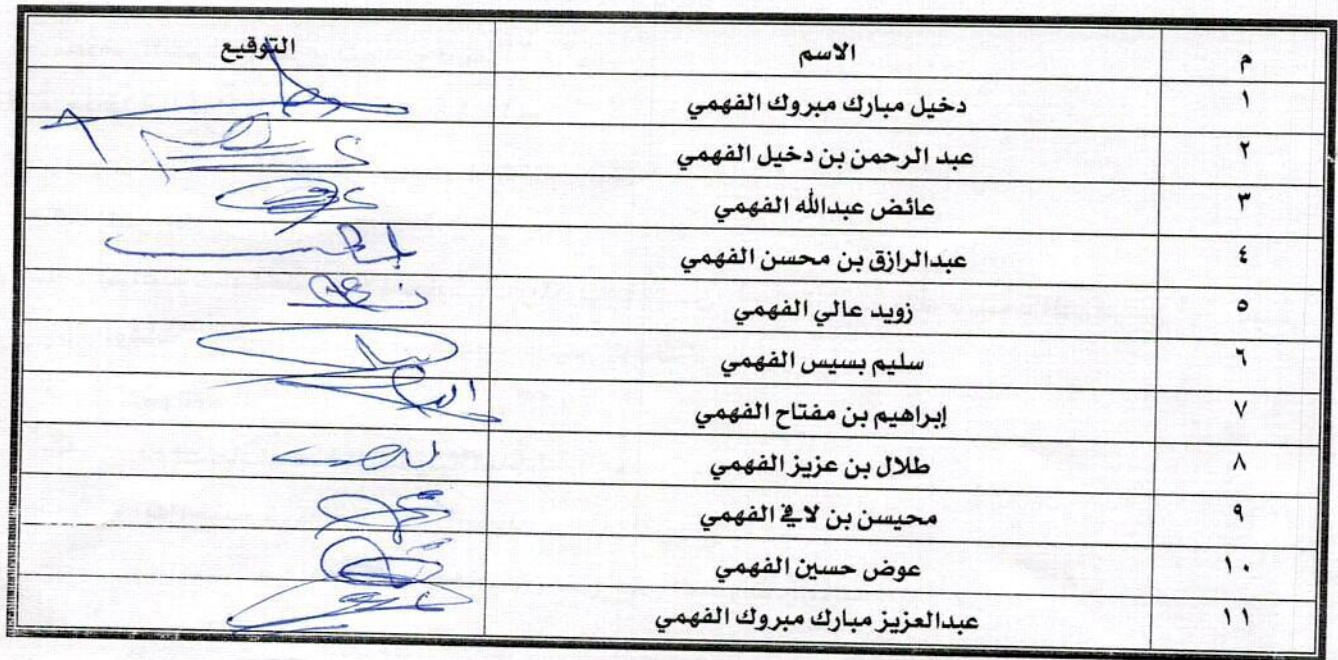 م الاسم التوقيع
١ دخيل مبارك مبروك الفهمي
٢ عبد الرحمن بن دخيل الفهمي
٣ عائض عبدالله الفهمي
٤ عبدالرازق بن محسن الفهمي
٥ زويد عالي الفهمي
٦ سليم بسيس الفهمي
٧ إبراهيم بن مفتاح الفهمي
٨ طلال بن عزيز الفهمي
٩ محيسن بن لافي الفهمي
١٠ عوض حسين الفهمي
١١ عبدالعزيز مبارك مبروك الفهمي